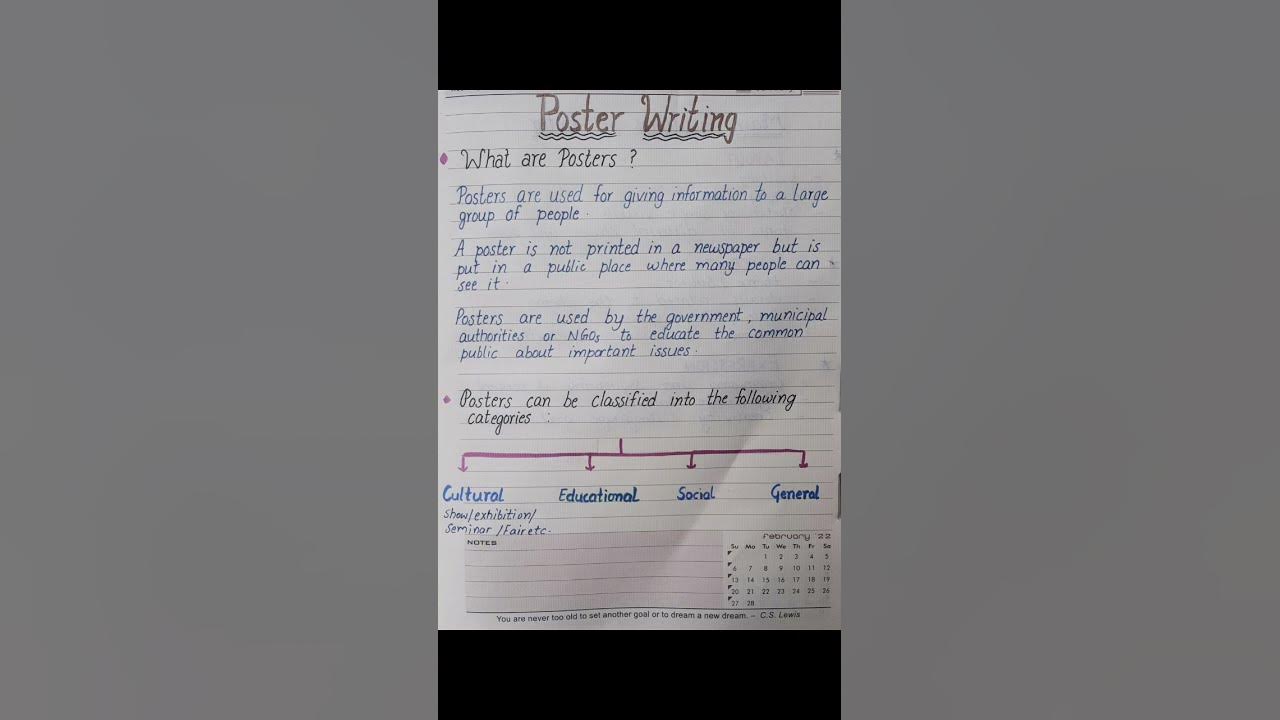 Poster Writing
What are Posters ?
Posters are used for giving information to a large
group of people.
A poster is not printed in a newspaper but is
put in a public place where many people can
see it.
Posters are used by the government, municipal
authorities or NGOs to educate the common
public about important issues.
Posters can be classified into the following
categories :
Cultural Educational Social General
show/exhibition/
Seminar /Fair etc.
NOTES
february '22
Su Mo Tu We Th Fr Sa
1 2 3 4 5
6 7 8 9 10 11 12
13 14 15 16 17 18 19
20 21 22 23 24 25 26
27 28
You are never too old to set another goal or to dream a new dream. – C.S. Lewis